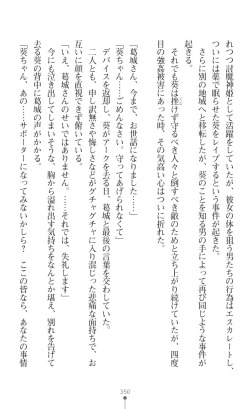 れつつ討魔神姫として活躍をしていたが、彼女の体を狙う男たちの行為はエスカレートし、
ついには薬で眠らせた葵をレイプするという事件が起きた。
さらに別の地域へと移転したが、葵のことを知る男の手によって再び同じような事件が
それでも葵は挫けず守るべき人々と倒すべき敵のためと立ち上がり続けていたが、四度
目の強姦被害にあったとき、その気高い心はついに折れた。
「葛城さん、今まで、お世話になりました」
「葵ちゃん……ごめんなさい、守ってあげられなくて」
デバイスを返却し、葵がアークを去る日、葛城と最後の言葉を交わしていた。
二人とも、申し訳無さや悔しさなどがグチャグチャに入り混じった悲痛な面持ちで、お
互いに顔を直視できず俯いている。
「いえ、葛城さんのせいではありません。……それでは、失礼します」
今にも泣き出してしまいそうな、胸から溢れ出す気持ちをなんとか堪え、別れを告げて
去る葵の背中に葛城の声がかかる。
「葵ちゃん、あの……サポーターになってみないかしら？　ここの皆なら、あなたの事情
350